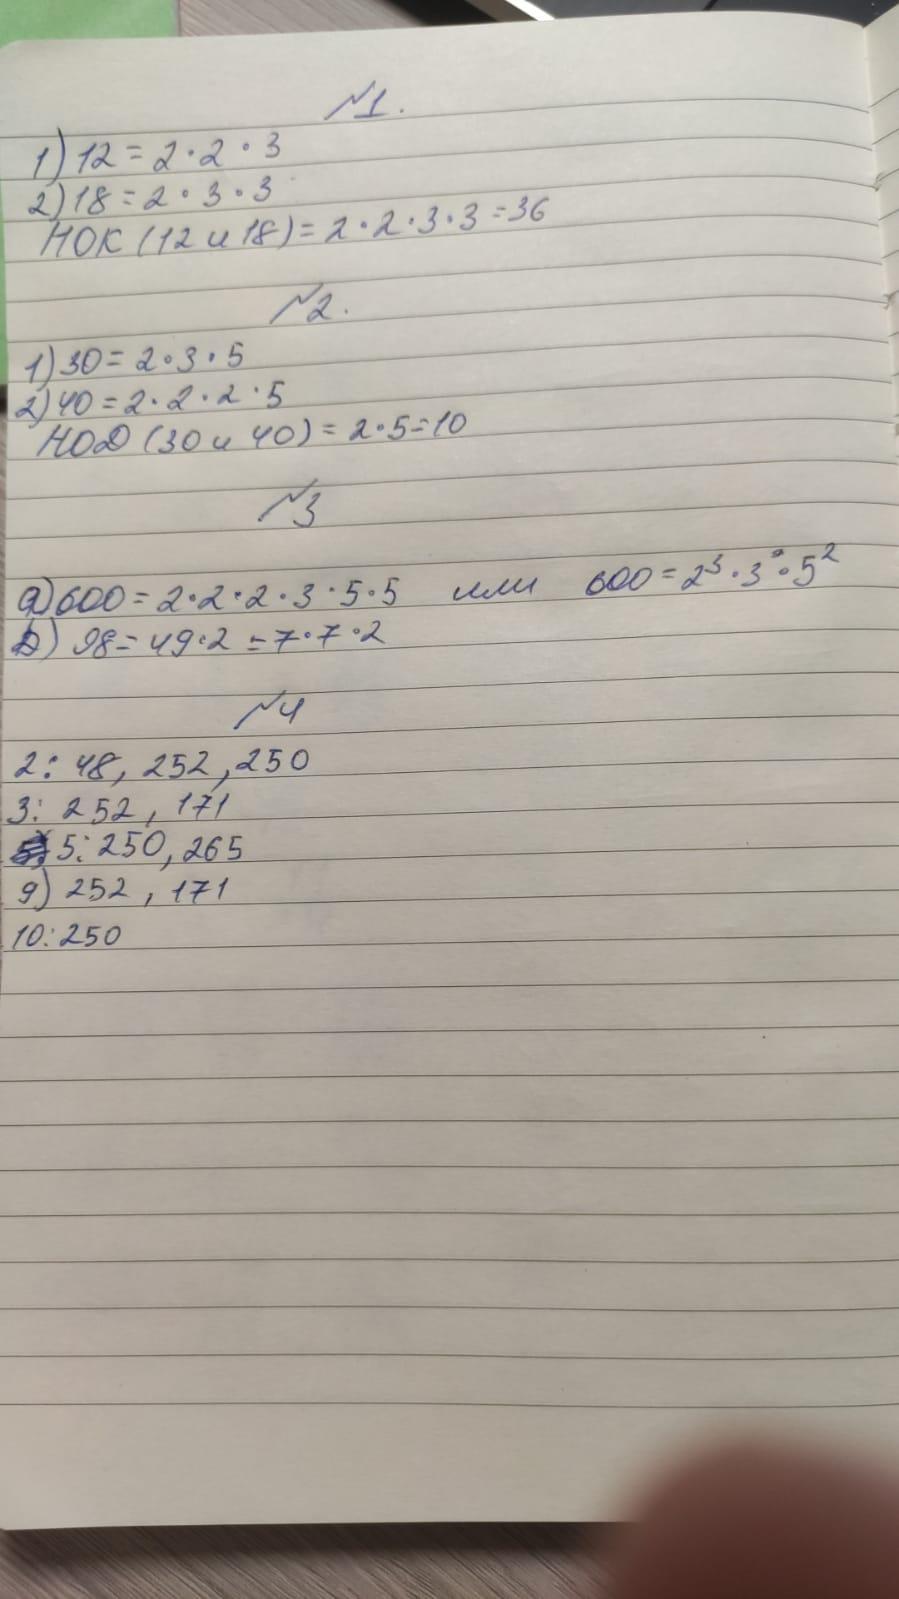 №1.
1) 12 = 2 · 2 · 3
2) 18 = 2 · 3 · 3
НОК (12 и 18) = 2 · 2 · 3 · 3 = 36
№2.
1) 30 = 2 · 3 · 5
2) 40 = 2 · 2 · 2 · 5
НОД (30 и 40) = 2 · 5 = 10
№3
а) 600 = 2 · 2 · 2 · 3 · 5 · 5 или 600 = 2³ · 3 · 5²
б) 98 = 49 · 2 = 7 · 7 · 2
№4
2: 48, 252, 250
3: 252, 171
5: 250, 265
9) 252, 171
10: 250